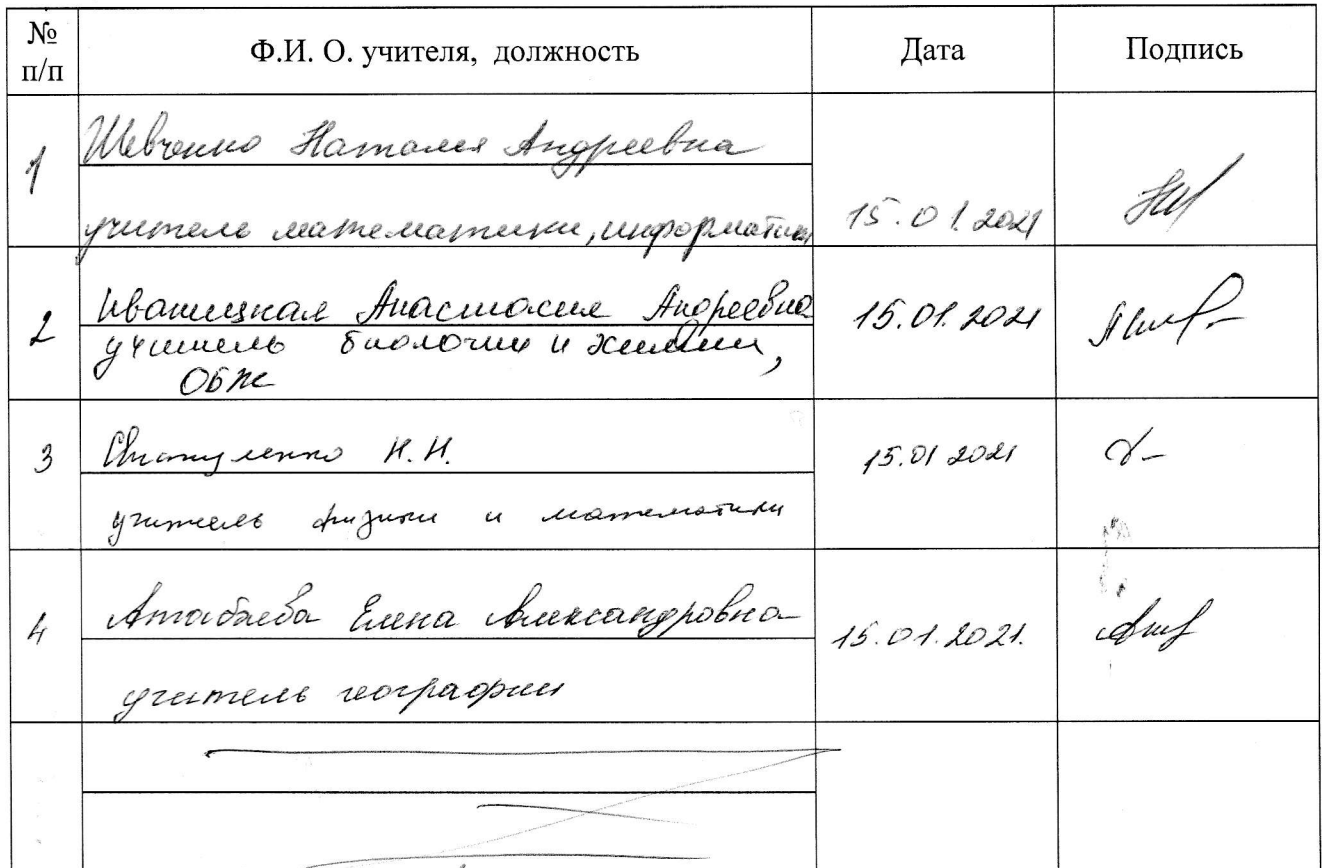 № п/п
Ф.И. О. учителя, должность
Дата
Подпись
1
Шевченко Наталия Андреевна
учитель математики, информатики
15.01.2021
2
Иваницкая Анастасия Андреевна
учитель биологии и химии,
ОБЖ
15.01.2021
3
Н.Н.
учитель физики и математики
15.01 2021
4
Атабаева Елена Александровна
учитель географии
15.01.2021.